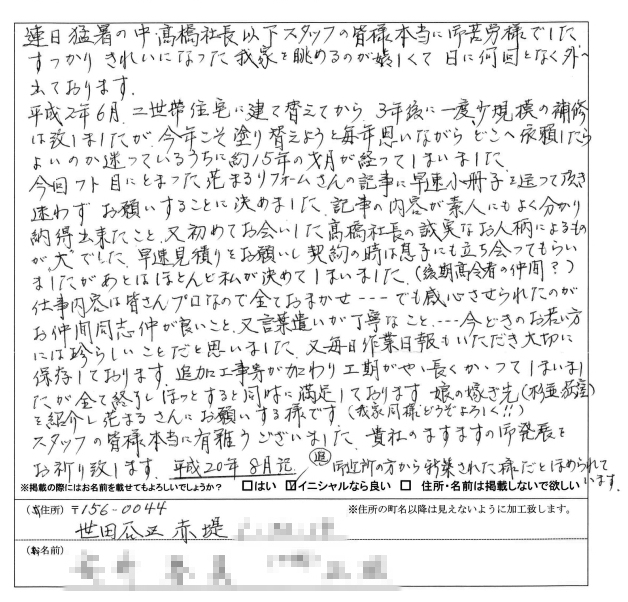 連日猛暑の中、高橋社長以下スタッフの皆様本当に御苦労様でした
すっかりきれいになった我家を眺めるのが嬉しくて日に何回となく外へ
出ております。
平成2年6月、二世帯住宅に建て替えてから、3年後に一度、小規模の補修
は致しましたが、今年こそ塗り替えようと毎年思いながらどこへ依頼したら
よいのか迷っているうちに約15年の才月が経ってしまいました
今回フト目にとまった花まるリフォームさんの記事に早速小冊子を送って頂き
迷わずお願いすることに決めました、記事の内容が素人にもよく分かり
納得出来たこと、又初めてお会いした高橋社長の誠実なお人柄によるもの
が大でした、早速見積りをお願いし契約の時は息子にも立ち会ってもらい
ましたがあとはほとんど私が決めてしまいました、(後期高令者の仲間?)
仕事内容は皆さんプロなので全ておまかせ---でも感心させられたのが
お仲間同志仲が良いこと、又言葉遣いが丁寧なこと、---今どきのお若い方
には珍らしいことだと思いました、又毎日作業日報もいただき大切に
保存しております、追加工事等が加わり工期がやゝ長くかゝってしまいまし
たが全て終了しほっとすると同時に満足しております 娘の嫁ぎ先(杉並)
を紹介し花まるさんにお願いする様です(我家同様どうぞよろしく!!)
スタッフの皆様本当に有難うございました、貴社のますますの御発展を
お祈り致します、平成20年8月記
(追) 御近所の方から新築された様だとほめられて
います、
※掲載の際にはお名前を載せてもよろしいでしょうか? □はい ☑イニシャルなら良い □ 住所・名前は掲載しないで欲しい
(ご住所) 〒156-0044 ※住所の町名以降は見えないように加工致します。
世田谷区赤堤
(お名前)